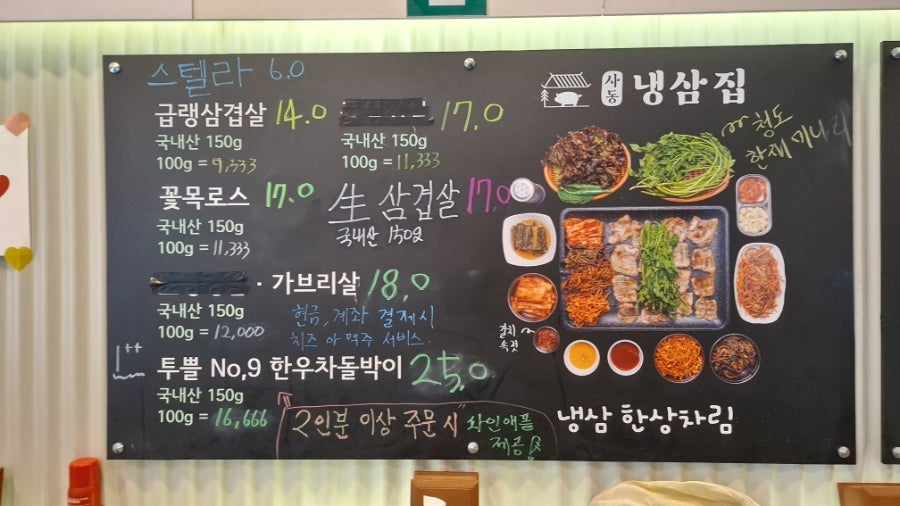 스텔라 6.0
급랭삼겹살 14.0
국내산 150g
100g = 9,333
17.0
국내산 150g
100g = 11,333
꽃목로스 17.0
국내산 150g
100g = 11,333
生 삼겹살 17.0
국내산 150g
· 가브리살 18.0
국내산 150g
100g = 12,000
현금, 계좌 결제시
치즈 아 맥주 서비스.
1++
투쁠 No,9 한우차돌박이 25.0
국내산 150g
100g = 16,666
2인분 이상 주문 시
와인애플
제공
사동 냉삼집
청도
한재 미나리
갈치
속젓
냉삼 한상차림